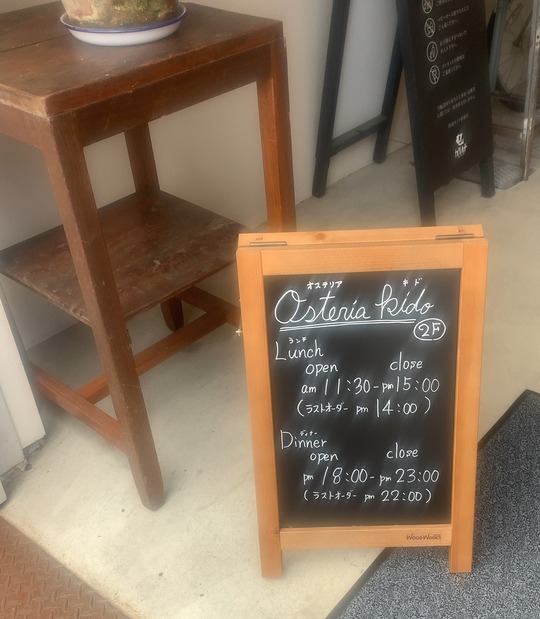 オステリア キド
Osteria Kido
2F
ランチ
Lunch
open close
am 11:30 - pm 15:00
(ラストオーダー pm 14:00)
ディナー
Dinner
open close
pm 18:00 - pm 23:00
(ラストオーダー pm 22:00)
WoodWorks